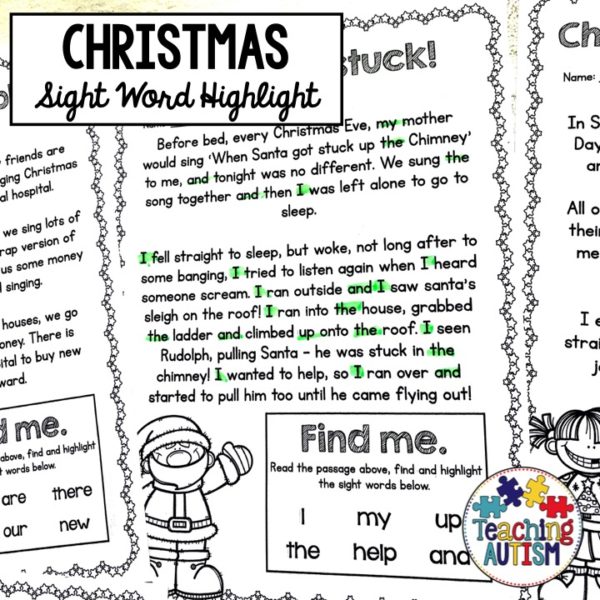 CHRISTMAS
Sight Word Highlight
stuck!
Before bed, every Christmas Eve, my mother
would sing 'When Santa got stuck up the Chimney'
to me, and tonight was no different. We sung the
song together and then I was left alone to go to
sleep.
I fell straight to sleep, but woke, not long after to
some banging, I tried to listen again when I heard
someone scream. I ran outside and I saw santa's
sleigh on the roof! I ran into the house, grabbed
the ladder and climbed up onto the roof. I seen
Rudolph, pulling Santa - he was stuck in the
chimney! I wanted to help, so I ran over and
started to pull him too until he came flying out!
Find me.
Read the passage above, find and highlight
the sight words below.
I my up
the help and
friends are
ging Christmas
al hospital.
we sing lots of
rap version of
us some money
d singing.
houses, we go
oney. There is
pital to buy new
ward.
d me.
above, find and highlight
ht words below.
are there
our new
Name:
In S
Day
an
All o
their
me
I e
strai
j
Teaching
AUTISM